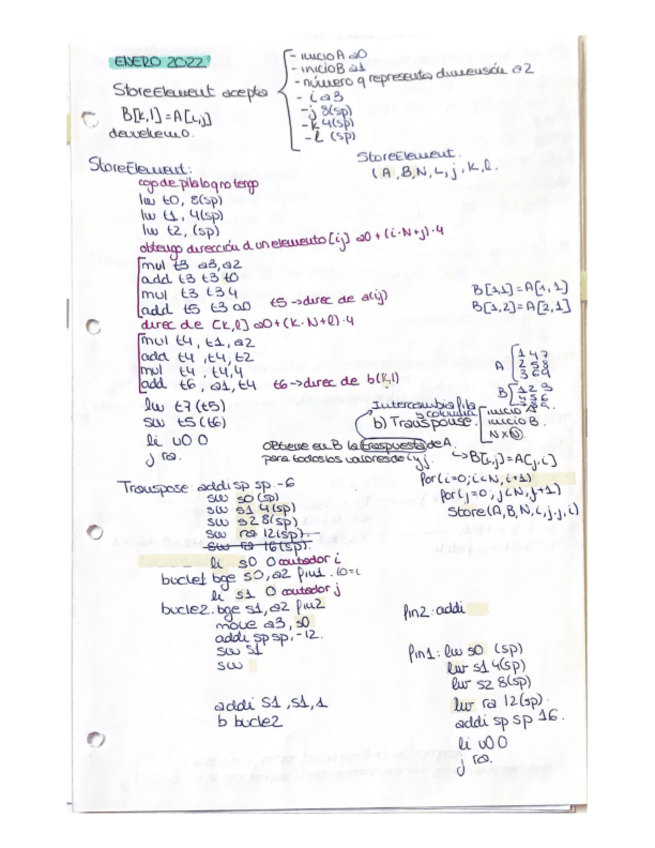 ENERO 2022
StoreElement acepta
- inicio A a0
- inicio B a1
- número q representa dimensión a2
- i a3
- j 8(sp)
- k 4(sp)
- l (sp)
B[k,l] = A[i,j]
devuelve 0.
StoreElement.
(A,B,N,i,j,k,l.
StoreElement:
cojo de pila lo q no tengo
lw t0, 8(sp)
lw t1, 4(sp)
lw t2, (sp)
obtengo dirección d un elemento [ij] a0 + (i·N+j)·4
mul t3 a3,a2
add t3 t3 t0
mul t3 t3 4
add t5 t3 a0 t5 → direc de a(ij)
direc de [k,l] a0 + (k·N+l)·4
mul t4, t1, a2
add t4, t4, t2
mul t4, t4, 4
add t6, a1, t4 t6 → direc de b(k,l)
lw t7 (t5)
sw t5 (t6)
li v0 0
j ra.
B[1,1] = A[1,1]
B[1,2] = A[2,1]
A [1 4 7
2 5 8
3 6 9
B [1 2 3
4 5 6
Intercambia fila
y columna
b) Transpouse.
inicio A.
inicio B.
N×N
Obtiene en B la traspuesta de A.
para todos los valores de i y j.
→ B[i,j] = A[j,i]
for(i=0; i<N, i+1)
for(j=0; j<N, j+1)
Store(A,B,N,i,j,j,i)
Transpose: addi sp sp -6
sw s0 (sp)
sw s1 4(sp)
sw s2 8(sp)
sw ra 12(sp)
sw ra 16(sp).
li s0 0 contador i
bucle1 bge s0, a2 fin1.
li s1 0 contador j
bucle2. bge s1, a2 fin2
move a3, s0
addi sp sp, -12.
sw s1
sw
addi s1, s1, 1
b bucle2
fin2: addi
fin1: lw s0 (sp)
lw s1 4(sp)
lw s2 8(sp)
lw ra 12(sp).
addi sp sp 16.
li v0 0
j ra.